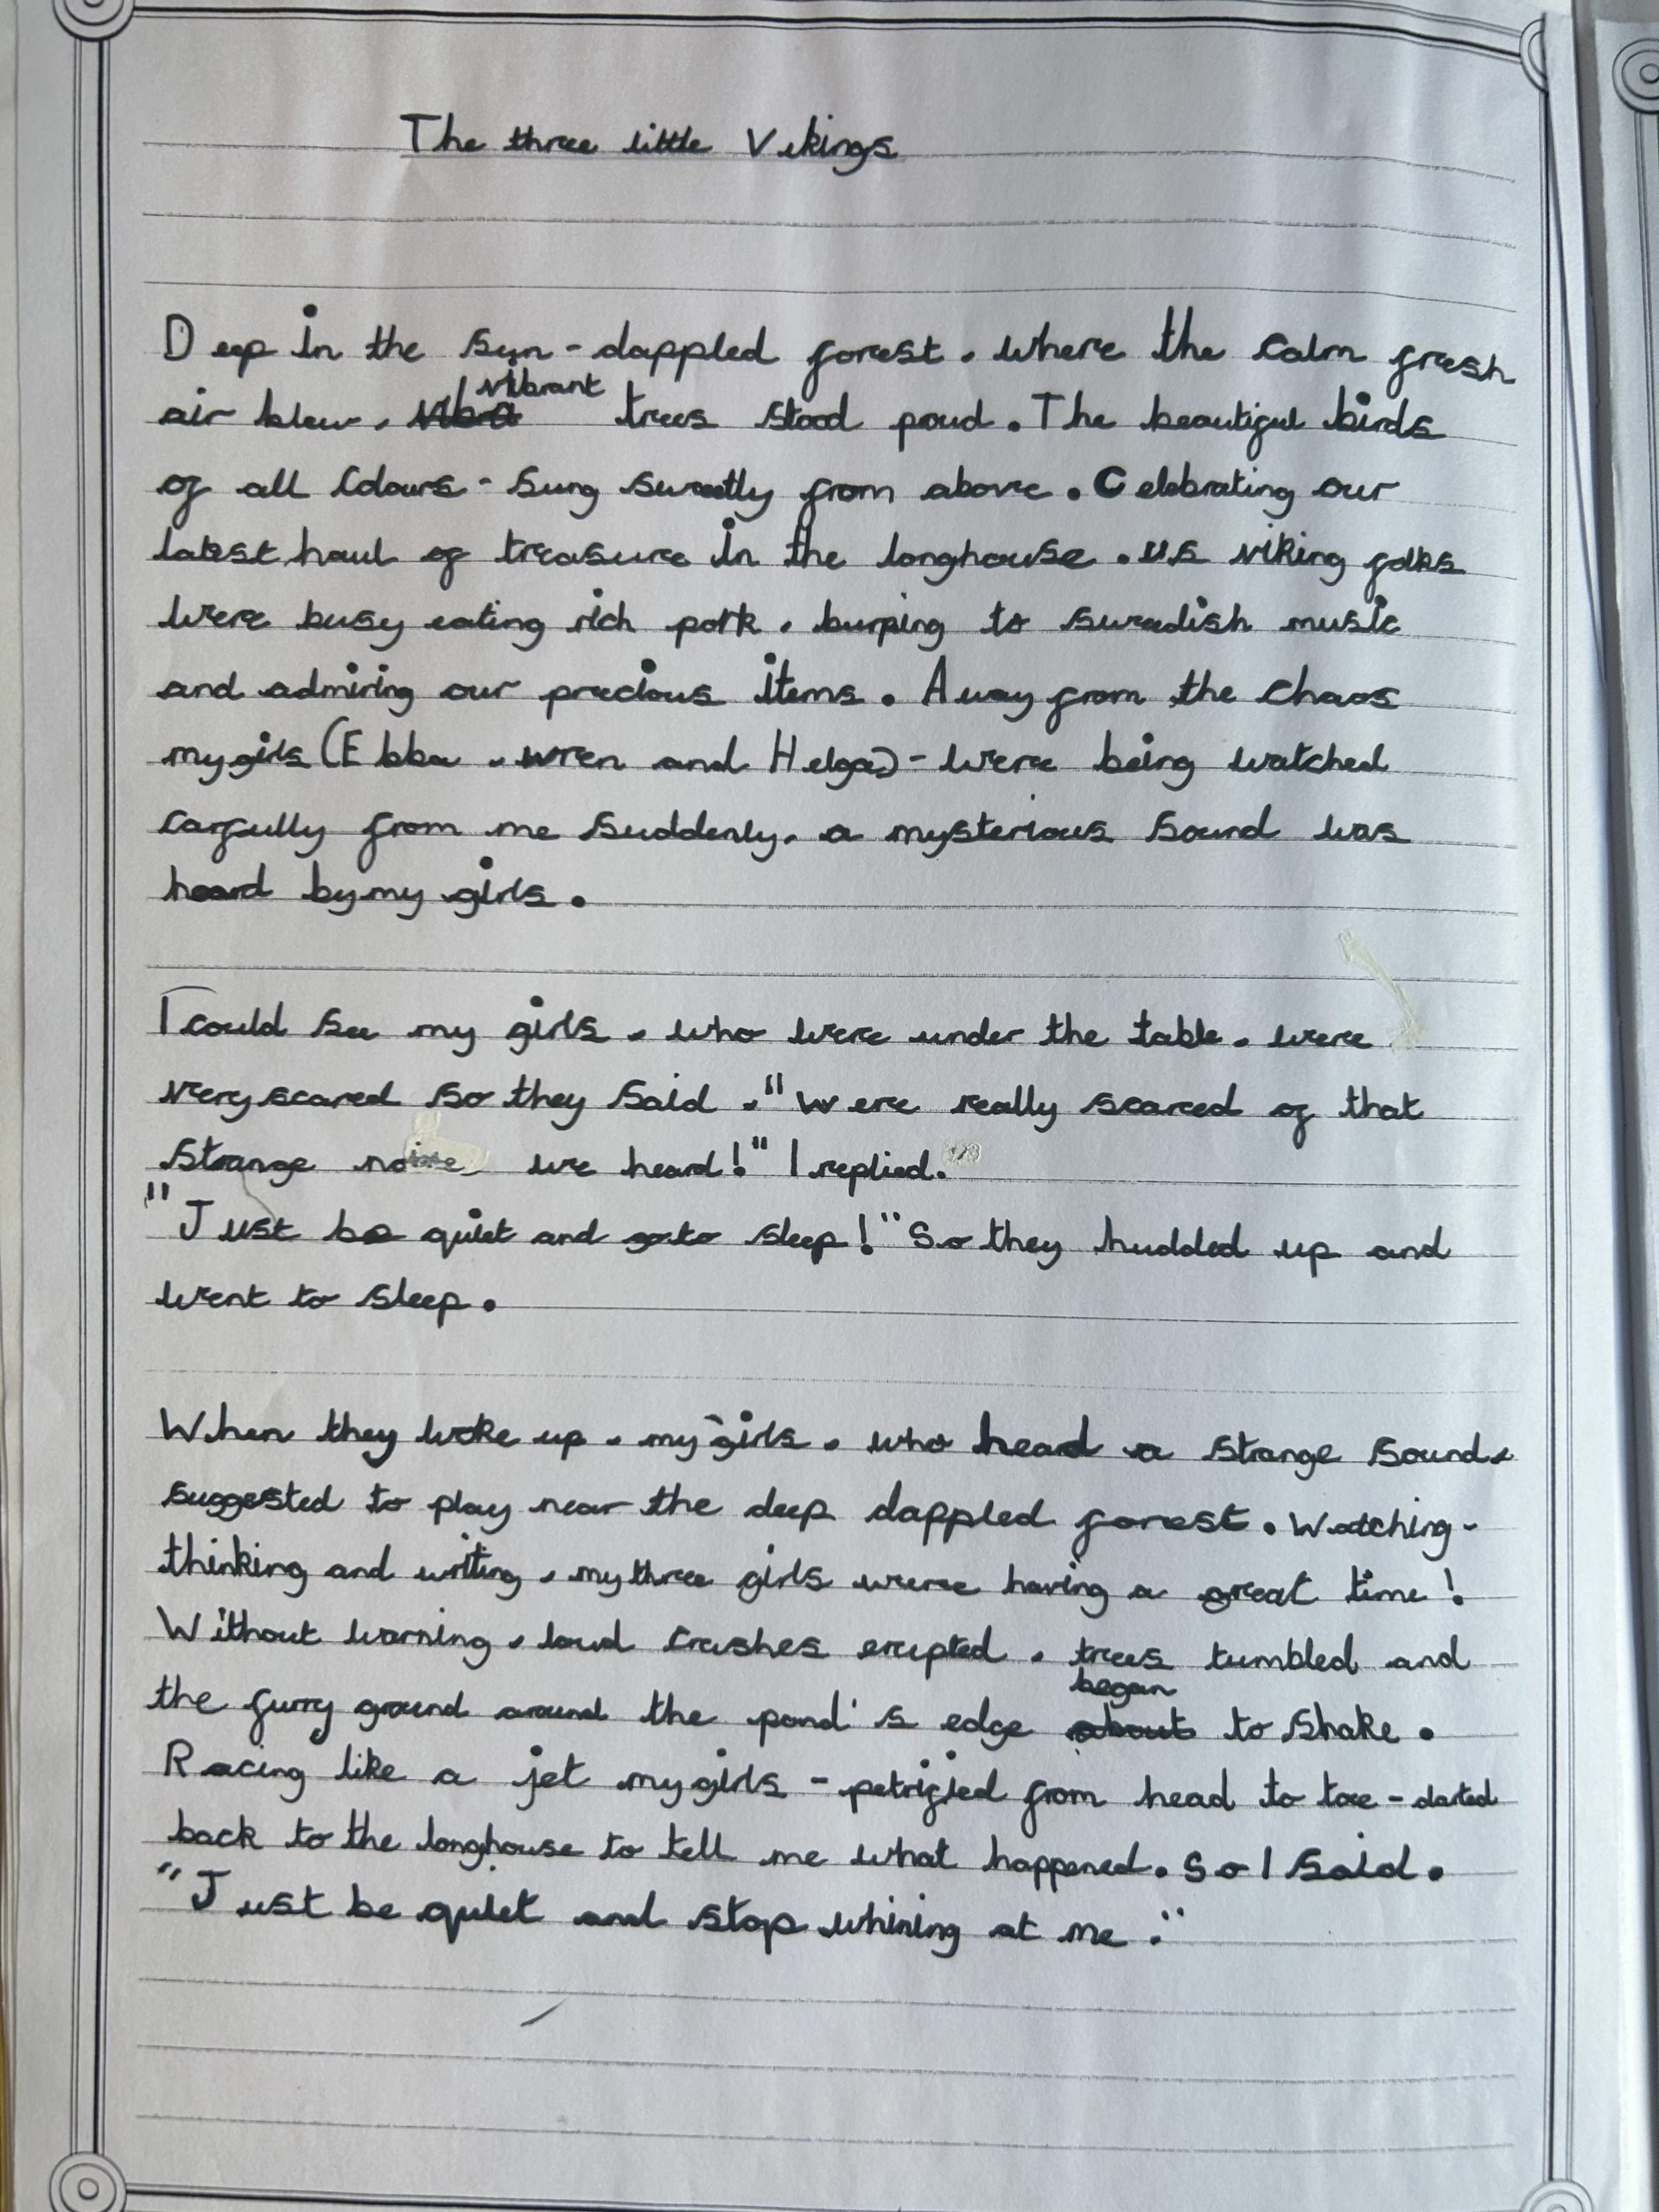 The three little Vikings
Deep in the sun-dappled forest, where the calm fresh
air blew, vibrant trees stood poud. The beautiful birds
of all colours - sung sweetly from above. Celebrating our
latest haul of treasure in the longhouse, us viking folks
were busy eating rich pork, burping to swedish music
and admiring our precious items. Away from the chaos
my girls (Ebba, wren and Helga) - were being watched
carfully from me suddenly, a mysterious sound was
heard by my girls.
I could see my girls, who were under the table, were
very scared so they said, "were really scared of that
strange noise we heard!" I replied.
"Just be quiet and go to sleep!" So they huddled up and
went to sleep.
When they woke up, my girls, who heard a strange sound,
suggested to play near the deep dappled forest. Watching,
thinking and writing, my three girls were having a great time!
Without warning, loud crashes erupted, trees tumbled and
the furry ground around the pond's edge began to shake.
Racing like a jet my girls - petrified from head to toe - darted
back to the longhouse to tell me what happened. So I said.
"Just be quiet and stop whining at me."